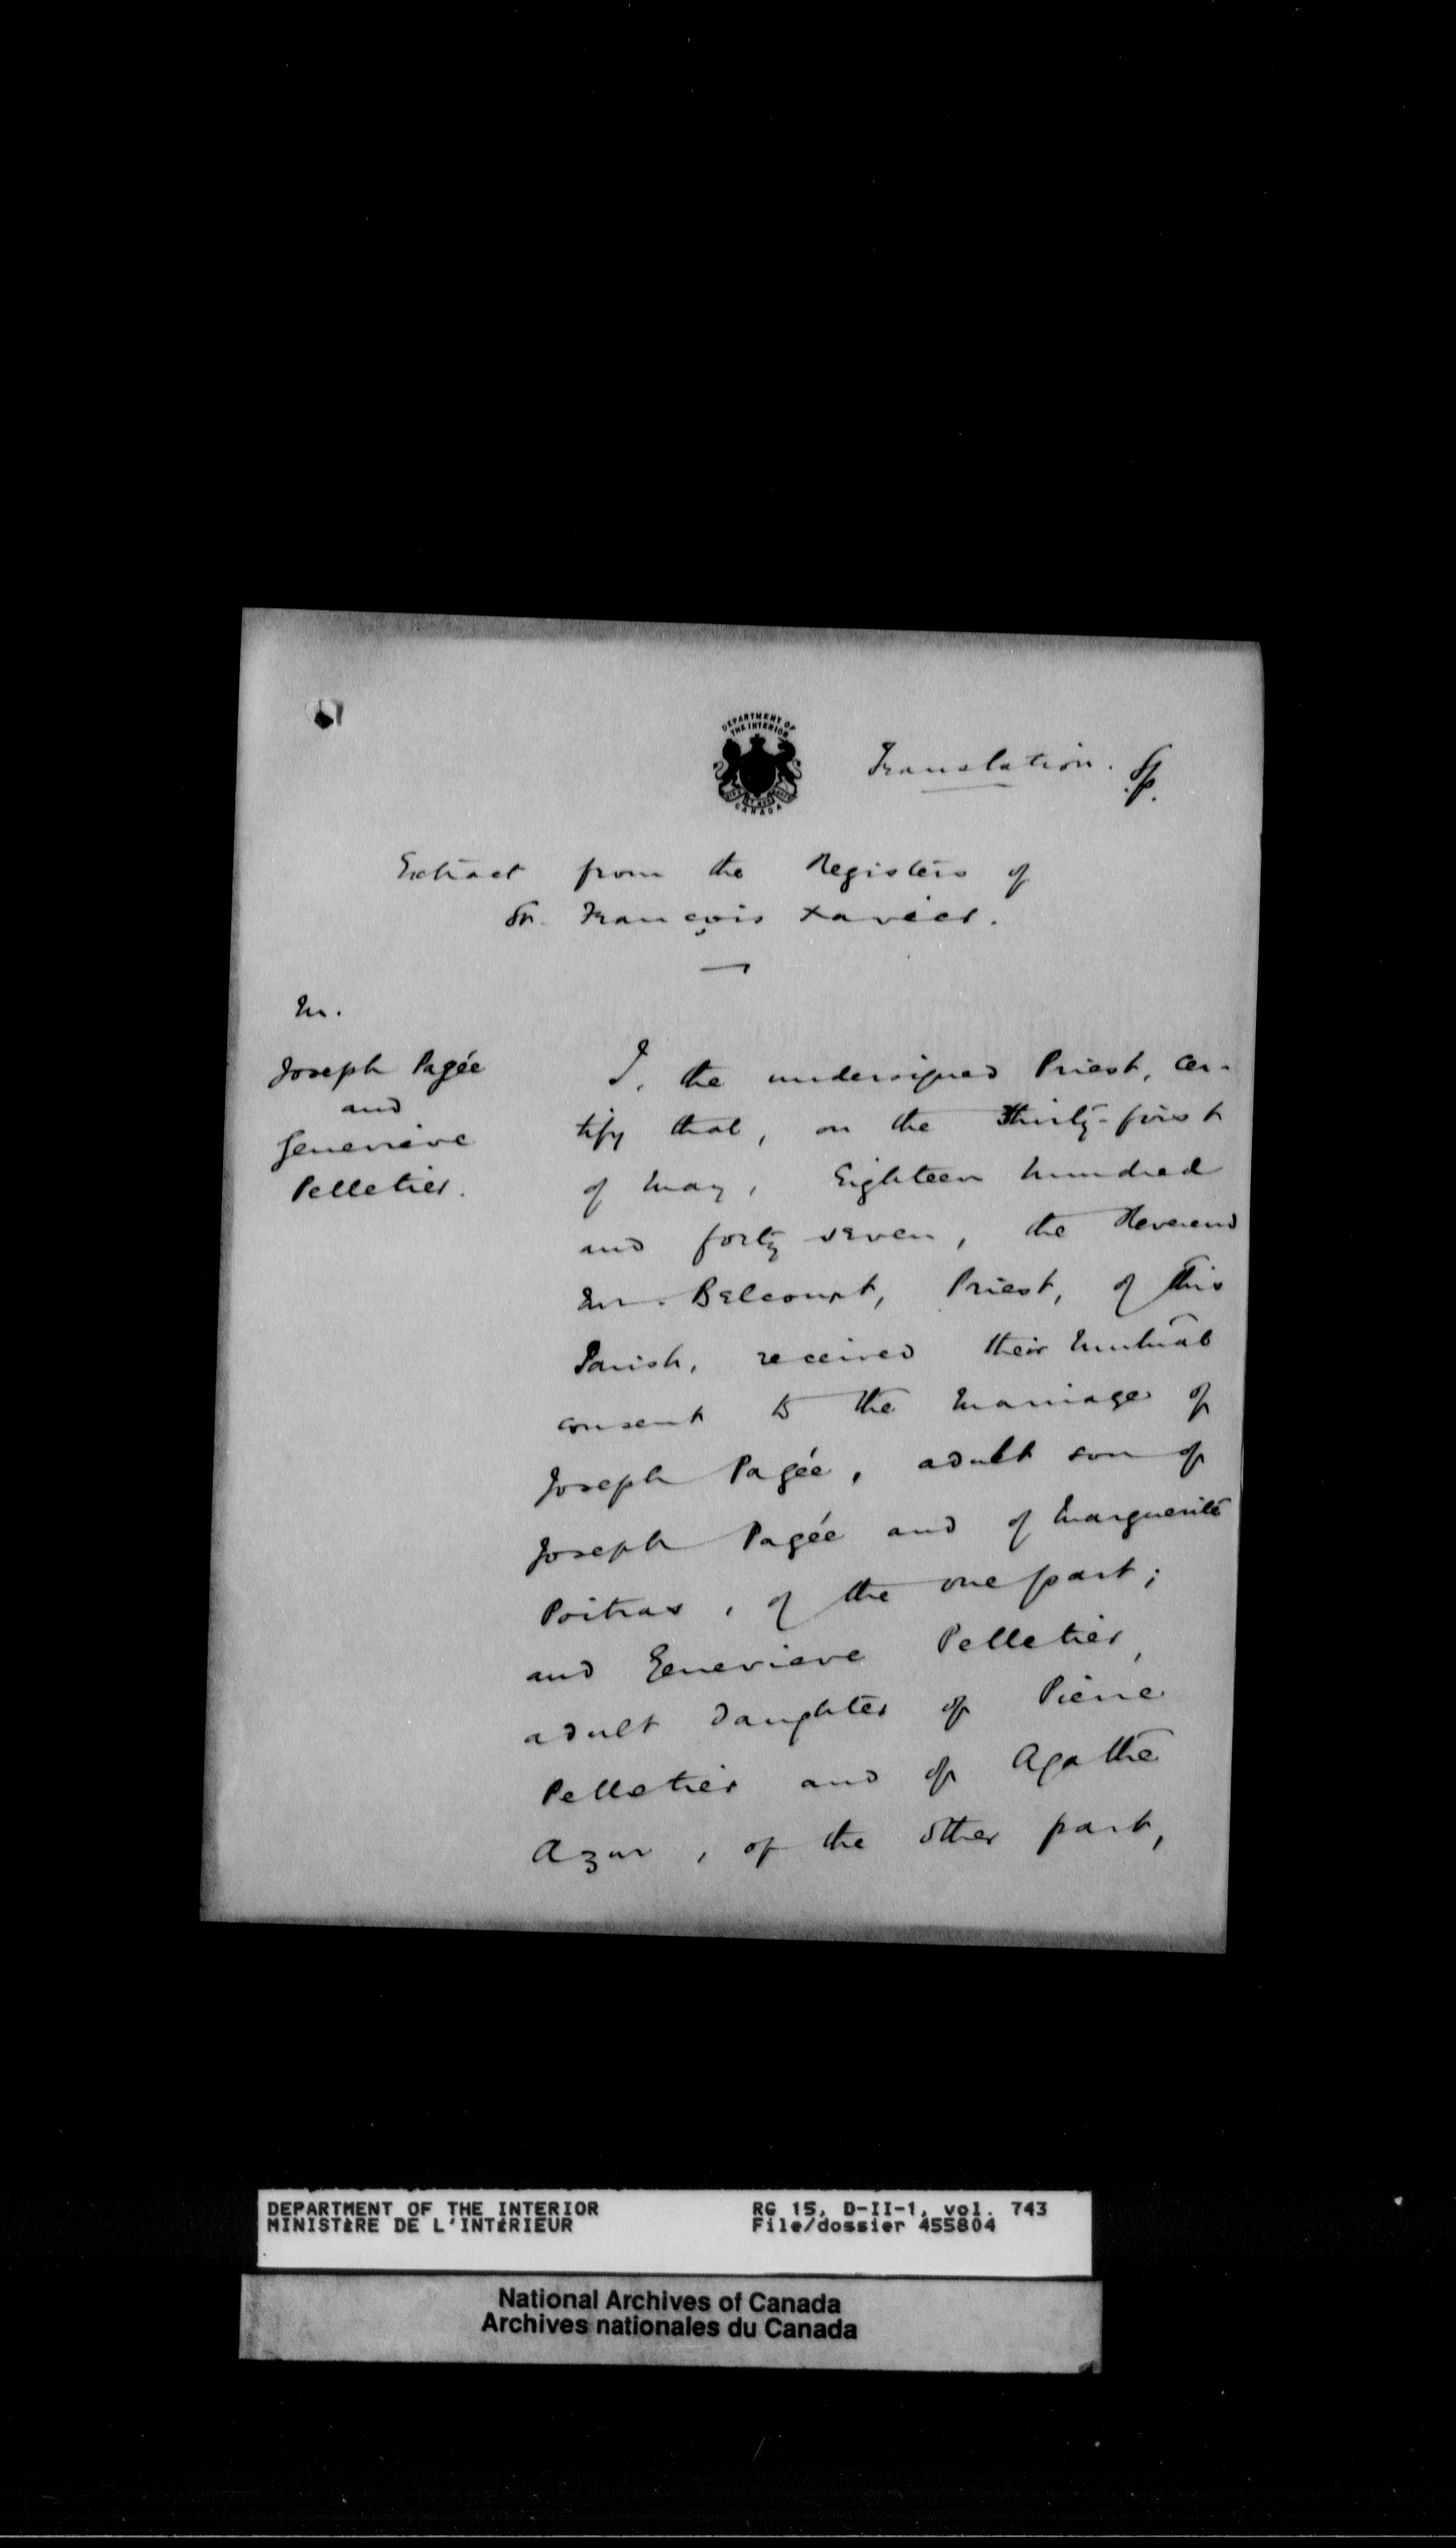 DEPARTMENT OF
THE INTERIOR
CANADA
Translation.
Extract from the Registers of
St. François Xavier.
M.
Joseph Pagée
and
Genevieve
Pelletier.
I, the undersigned Priest, cer-
tify that, on the Thirty-first
of May, Eighteen hundred
and forty seven, the Reverend
Mr. Belcourt, Priest, of this
Parish, received their mutual
consent to the marriage of
Joseph Pagée, adult son of
Joseph Pagée and of Marguerite
Poitras, of the one part;
and Genevieve Pelletier,
adult daughter of Pierre
Pelletier and of Agathe
Azur, of the other part,
DEPARTMENT OF THE INTERIOR
MINISTÈRE DE L'INTÉRIEUR
RG 15, D-II-1, vol. 743
File/dossier 455804
National Archives of Canada
Archives nationales du Canada